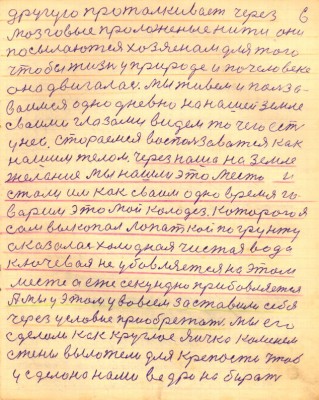 другую проталкивает через 6
мозговые проложеные нити они
посылаются хозяенам для того
чтобы жизн у природе и по человеке
она двигалась. Мы живем и полза-
ваимся одно дневно на нашей земле
сваими глазами видем то чего есть
у нее, стараемся воспользоватся как
нашим телом, через наша на земле
желание мы нашли это место и
стали им как сваим одно время го-
варим это мой колодез. Которого я
сам выкопал лопаткой по грунту
аказалас холодная чистая вода
ключевая не убовляется на этом
месте а ече секундно прибовляется
А мы у этом у во всем заставили себя
через условие приобретат. Мы его
сделали как круглое яичко каменем
стены выложем для крепости чтоб
у сделано нами ведро набират